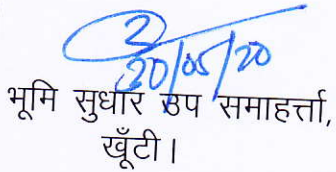 20/05/20
भूमि सुधार उप समाहर्त्ता,
खूँटी।